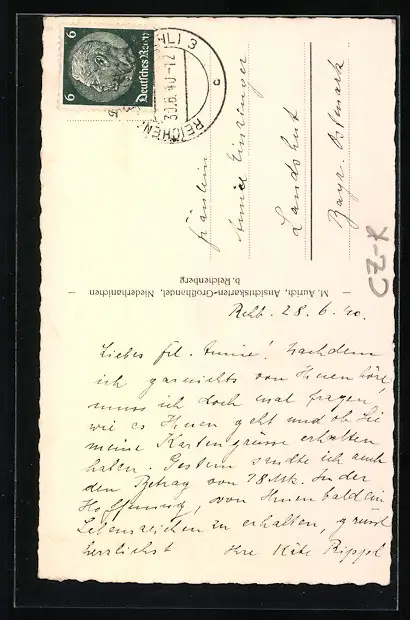 6
6
Deutsches Reich
REICHENB
3
c
30.6.40-12
Fräulein
Landshut
Bayr. Ostmark
CZ-R
M. Aurich, Ansichtskarten-Großhandel, Niederhanichen
b. Reichenberg
Rchb. 28. 6. 40.
Liebes Frl. Annie! Nachdem
ich garnichts von Ihnen höre,
muss ich doch mal fragen,
wie es Ihnen geht und ob Sie
meine Kartengrüsse erhalten
haben. Gestern sandte ich auch
den Betrag von 78 Mk. In der
Hoffnung, von Ihnen bald ein
Lebenszeichen zu erhalten, grüsst
herzlichst Ihre Käte Rippl